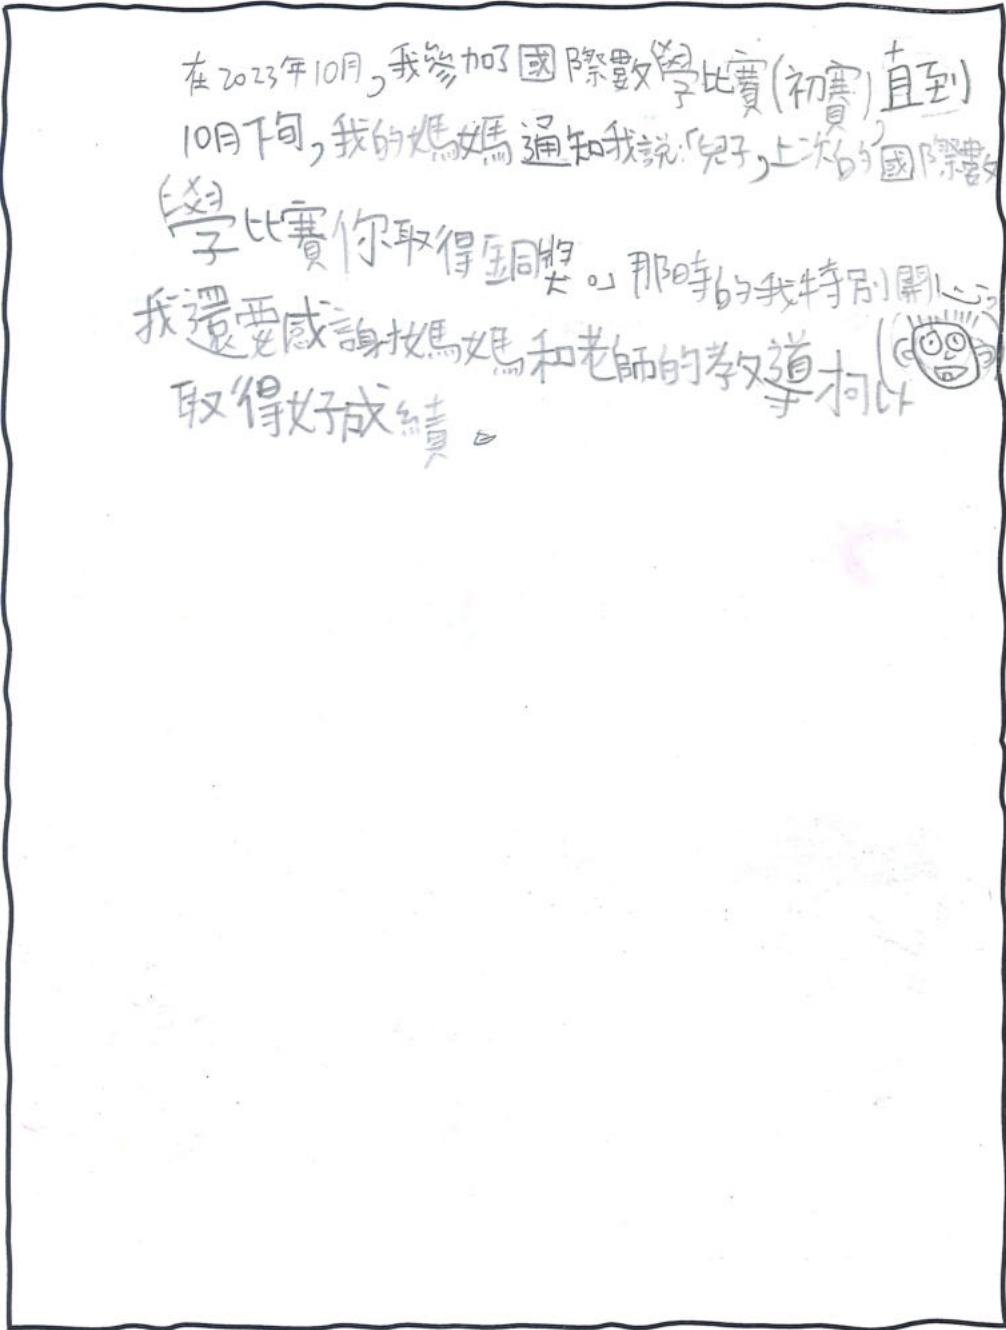 在2023年10月,我參加了國際數學比賽(初賽),直到
10月下旬,我的媽媽通知我説:「兒子,上次的國際數
學比賽你取得銅獎。」那時的我特別開心,
我還要感謝媽媽和老師的教導才可以
取得好成績。